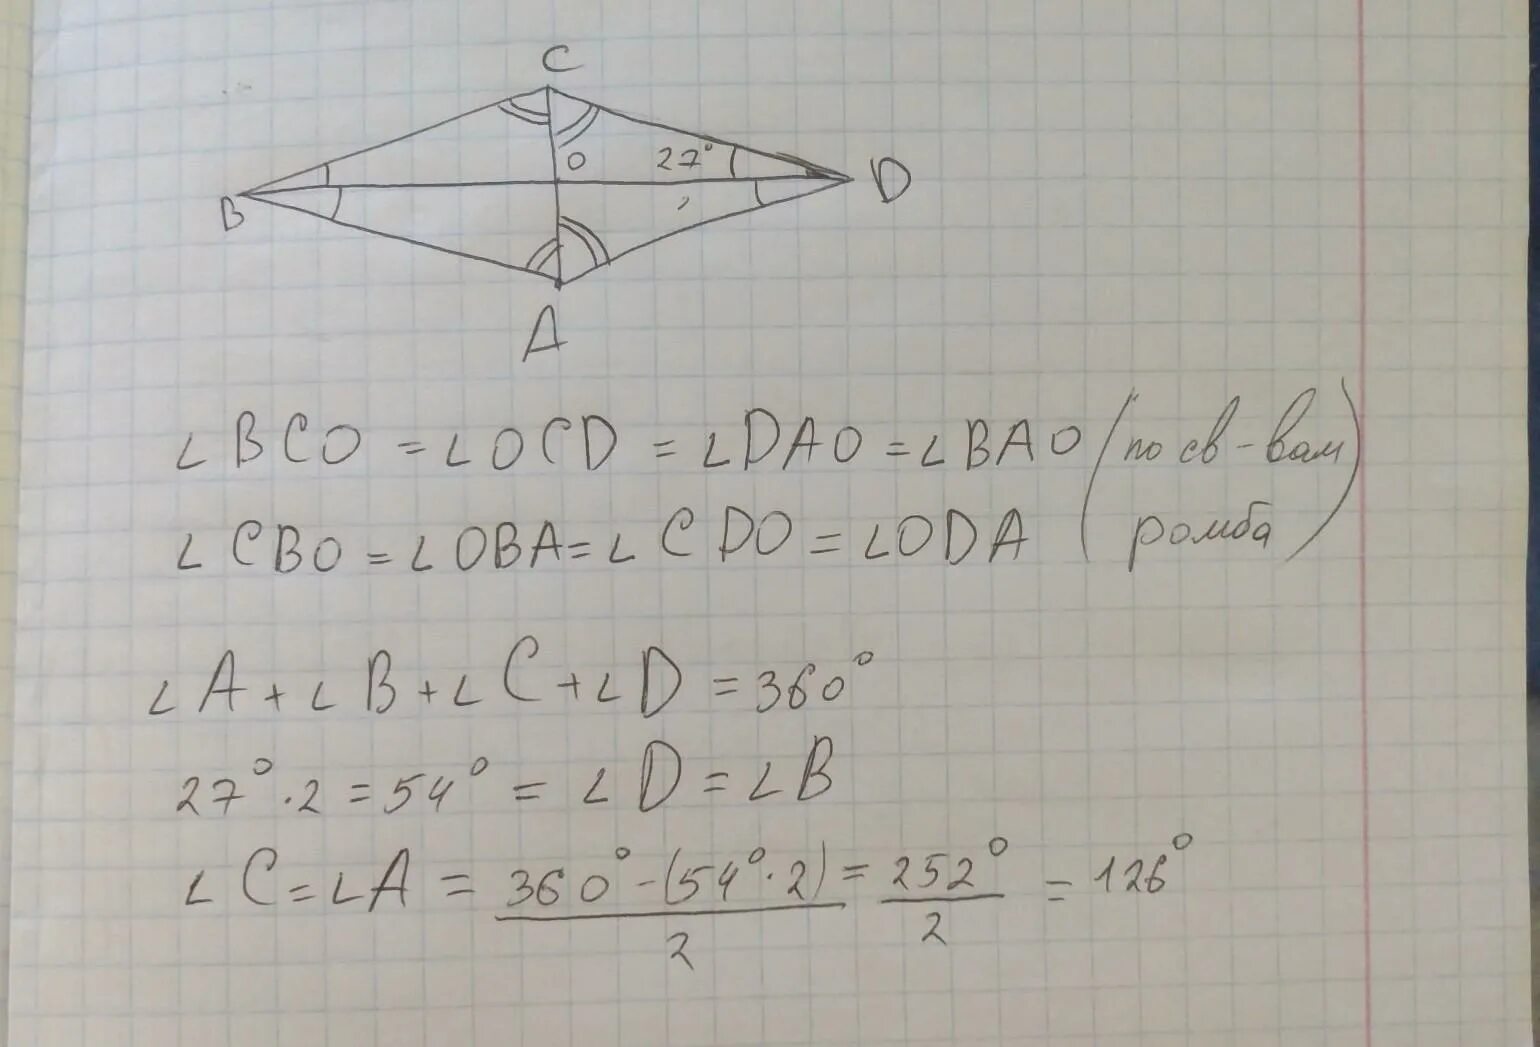 C
O
27°
B
D
A
∠BCO = ∠OCD = ∠DAO = ∠BAO (по св-вам
∠CBO = ∠OBA = ∠CDO = ∠ODA ромба)
∠A + ∠B + ∠C + ∠D = 360°
27° · 2 = 54° = ∠D = ∠B
∠C = ∠A = (360° - (54° · 2))/2 = 252°/2 = 126°